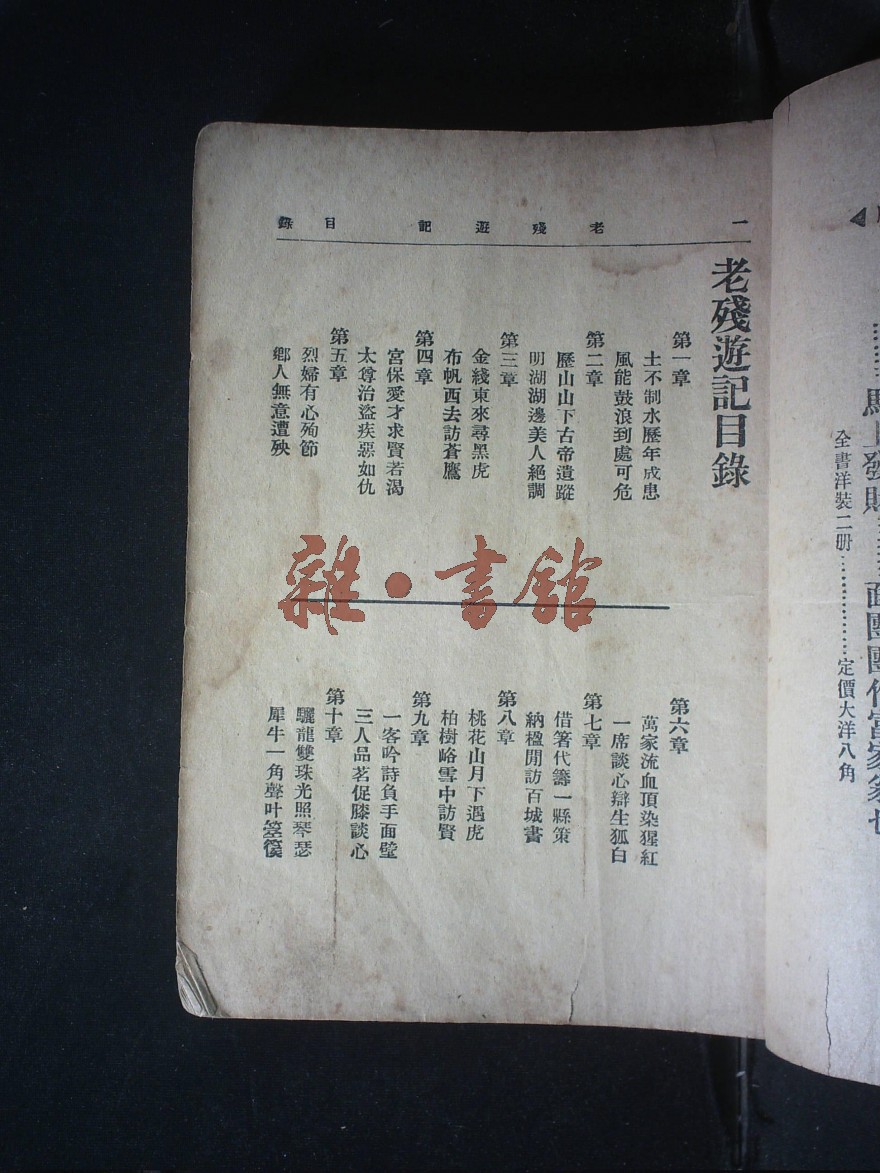 一 老殘遊記 目錄
老殘遊記目錄
第一章
土不制水歷年成患
風能鼓浪到處可危
第二章
歷山山下古帝遺蹤
明湖湖邊美人絕調
第三章
金綫東來尋黑虎
布帆西去訪蒼鷹
第四章
宮保愛才求賢若渴
太尊治盜疾惡如仇
第五章
烈婦有心殉節
鄉人無意遭殃
第六章
萬家流血頂染猩紅
一席談心辯生狐白
第七章
借箸代籌一縣策
納楹閒訪百城書
第八章
桃花山月下遇虎
柏樹峪雪中訪賢
第九章
一客吟詩負手面壁
三人品茗促膝談心
第十章
驪龍雙珠光照琴瑟
犀牛一角聲叶箜篌
雜·書館
全書洋裝二册………………定價大洋八角